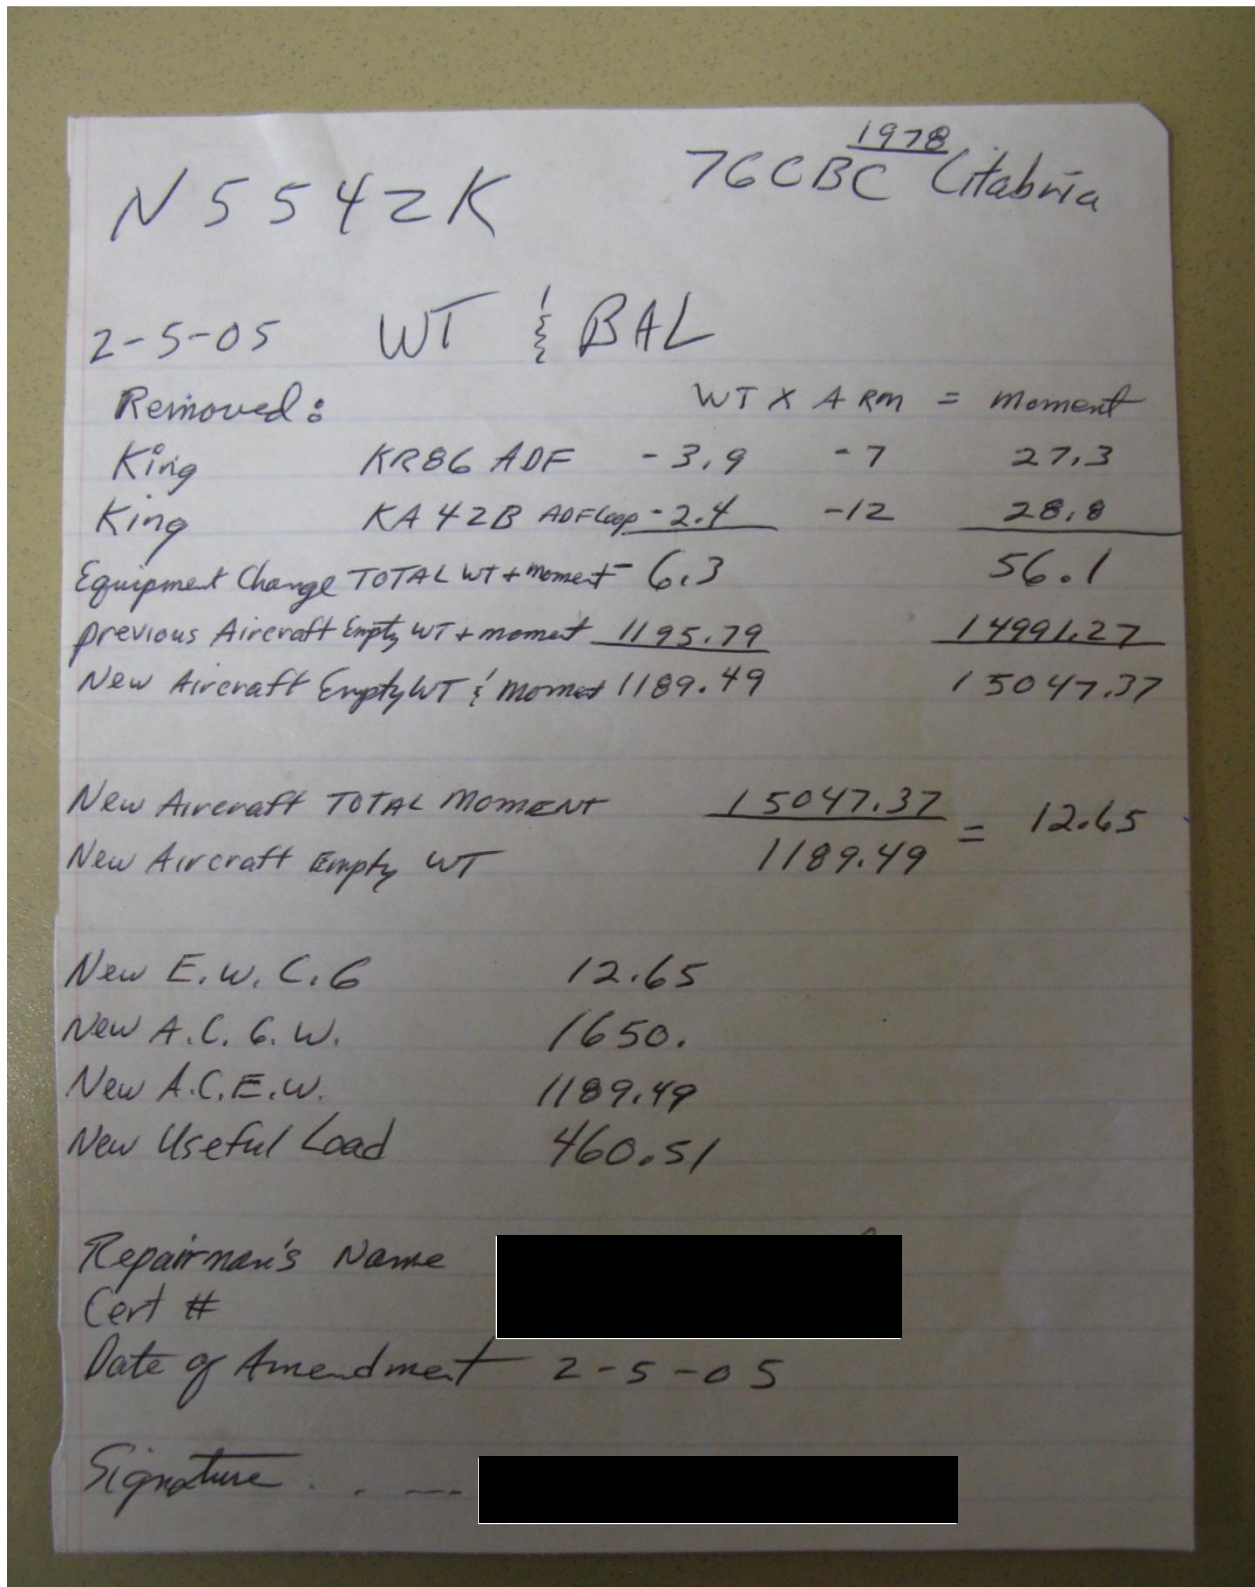 1978
N5542K 7GCBC Citabria
2-5-05 WT & BAL
Removed: WT X ARM = moment
King KR86 ADF -3.9 -7 27.3
King KA42B ADF Loop -2.4 -12 28.8
Equipment Change TOTAL WT + moment - 6.3 56.1
previous Aircraft Empty WT + moment 1195.79 14991.27
New Aircraft Empty WT & Moment 1189.49 15047.37
New Aircraft TOTAL MOMENT 15047.37 = 12.65
New Aircraft Empty WT 1189.49
New E.W.C.G 12.65
New A.C.G.W. 1650.
New A.C.E.W. 1189.49
New Useful Load 460.51
Repairman's Name
Cert #
Date of Amendment 2-5-05
Signature . . ---